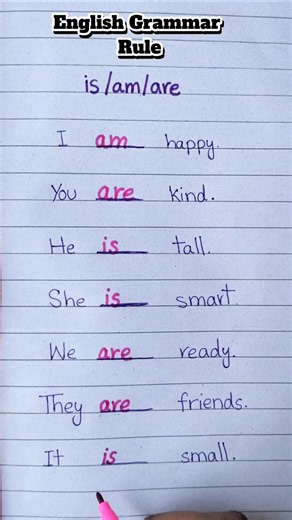 English Grammar
Rule
is/am/are
I am happy.
You are kind.
He is tall.
She is smart.
We are ready.
They are friends.
It is small.